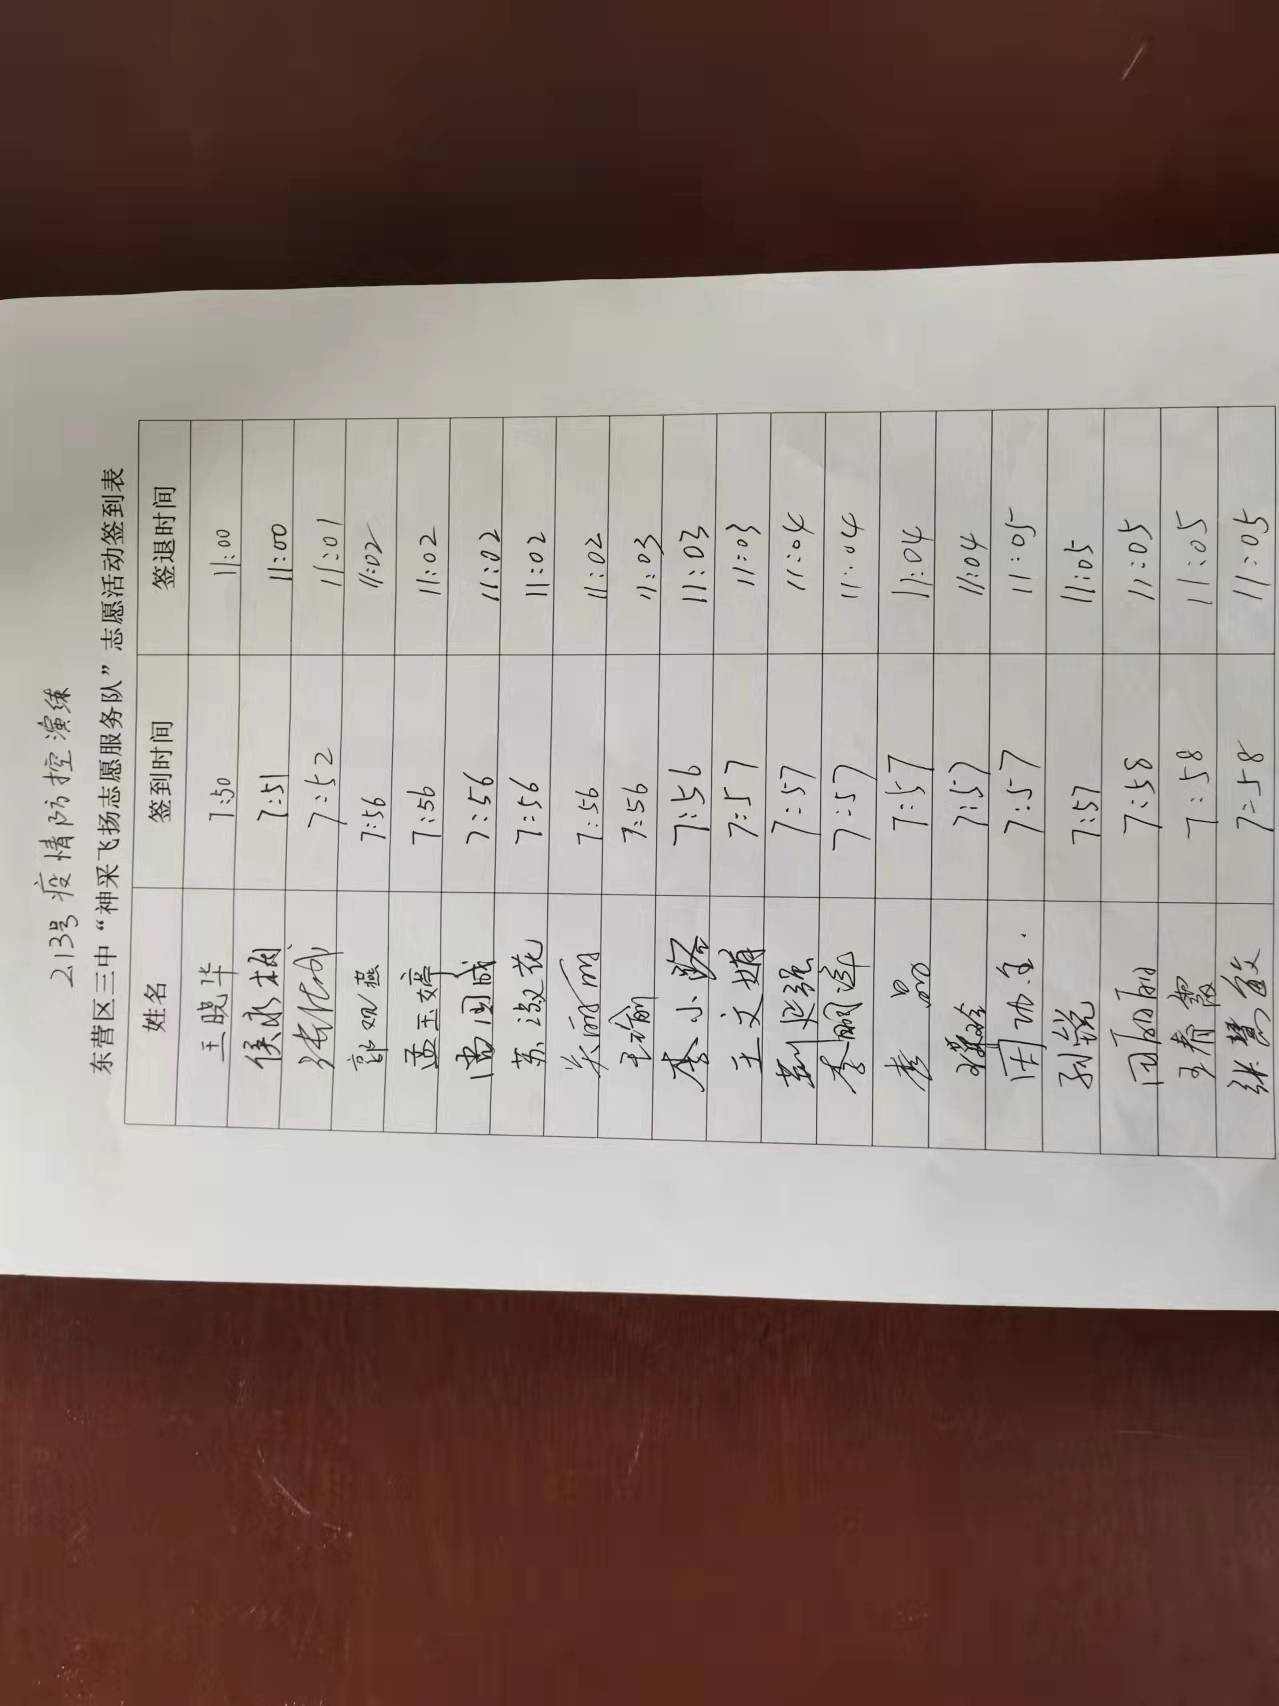 213号疫情防控演练
东营区三中“神采飞扬志愿服务队”志愿活动签到表
姓名 签到时间 签退时间
王晓华 7:50 11:00
侯永梅 7:51 11:00
7:52 11:01
郭观燕 7:56 11:02
孟玉婷 7:56 11:02
国成 7:56 11:02
苏淑花 7:56 11:02
关丽丽 7:56 11:02
王瑜 7:56 11:03
李小路 7:56 11:03
王文娟 7:57 11:03
7:57 11:04
李鹏洋 7:57 11:04
李晶 7:57 11:04
7:57 11:04
7:57 11:05
孙锐 7:57 11:05
田丽丽 7:58 11:05
王春霞 7:58 11:05
张慧敏 7:58 11:05